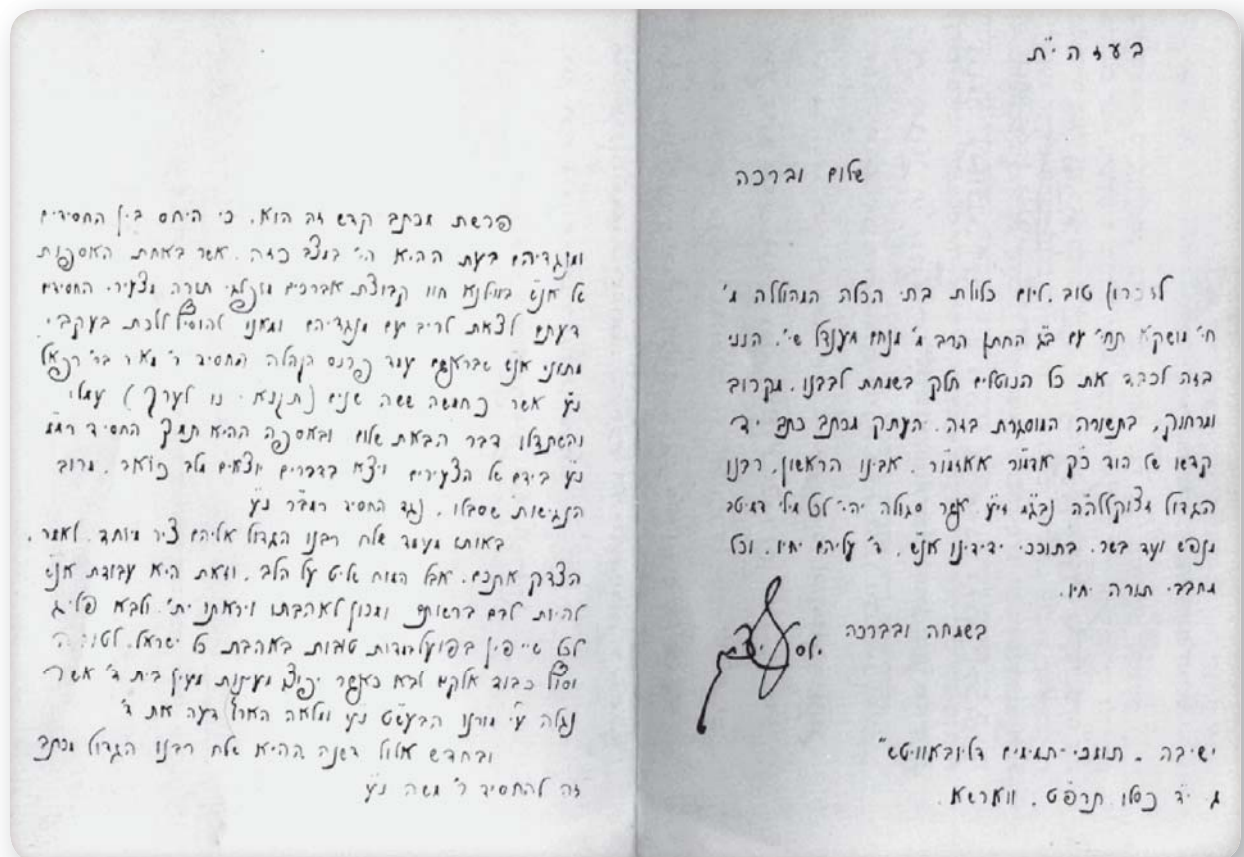 בעזהי״ת
שלום וברכה
לזכרון טוב, ליום כלולת בתי הכלה המהוללה מ׳
חי׳ מושקא תחי׳ עם ב״ג החתן הרב מ׳ מנחם מענדל שי׳, הנני
בזה לכבד את כל הנוטלים חלק בשמחת לבבנו, מקרוב
ומרחוק, בתשורה המוסגרת בזה. העתק מכתב כתב יד
קדשו של הוד כ״ק אדמו״ר אאזמו״ר, אבינו הראשון, רבנו
הגדול נבג״מ זי״ע, אשר סגולה יהי׳ לכל מילי דמיטב
מנפש ועד בשר, בתוככי ידידינו אנ״ש, ד׳ עליהם יחיו, וכל
מחבבי תורה יחיו.
בשמחה ובברכה
יוסף יצחק
ישיבה ״תומכי-תמימים דליובאוויטש״
ג׳ י״ד כסלו תרפ״ט, ווארשא.
פרשת מכתב קדש זה הוא, כי היחס בין החסידים
ומנגדיהם בעת ההיא הי׳ במצב כזה, אשר באחת האספות
של אנ״ש בווילנא חוו קבוצת אברכים מופלגי תורה מצעירי החסידים
דעתם לצאת לריב עם מנגדיהם ומאנו להוסיף ללכת בעקבי
מתוני אנ״ש שבראשם עמד פרנס הקהלה החסיד ר׳ מאיר בר׳ רפאל
נ״ע אשר כחמשה ששה שנים (תקנ״א - נ״ו לערך) עמלו
והשתדלו דבר הבאת שלום ובאספה ההיא תמך החסיד
נ״ע בידם של הצעירים ויצא בדברים יוצאים מלב כואב, מרוב
הנגישות שסבלו, נגד החסיד רמב״ר נ״ע
באותו מעמד שלח רבנו הגדול אליהם ציר מיוחד, לאמר,
הצדק אתכם, אבל המוח שליט על הלב, וזאת היא עבודת אנ״ש
להיות לבם ברשותם ומכוון לאהבתו ויראתו ית׳, ולבא פליג
לכל שייפין בפועל במדות טובות באהבת כל ישראל,
וסוף כבוד אלקים לבא כאשר יפוצו מעינות מעין בית ד׳ אשר
נגלה ע״י מורנו הבעש״ט נ״ע ומלאה הארץ דעה את ד׳
ובחדש אלול דשנה ההיא שלח רבנו הגדול מכתב
זה להחסיד ר׳ משה נ״ע